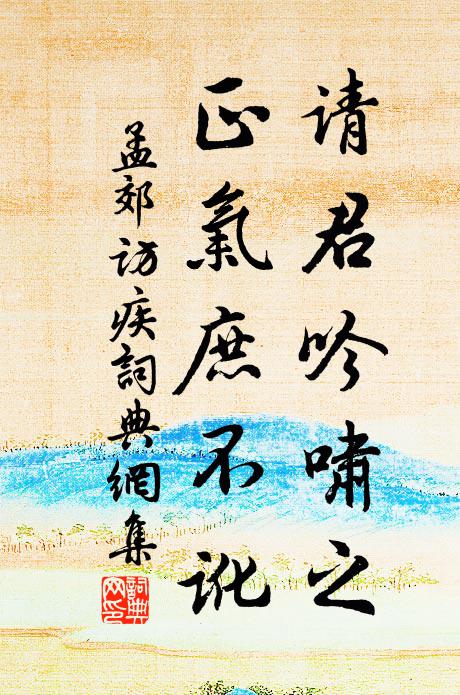 请君吟啸之
正氣庶不訛
孟郊访疾詞典網集
詞典网印